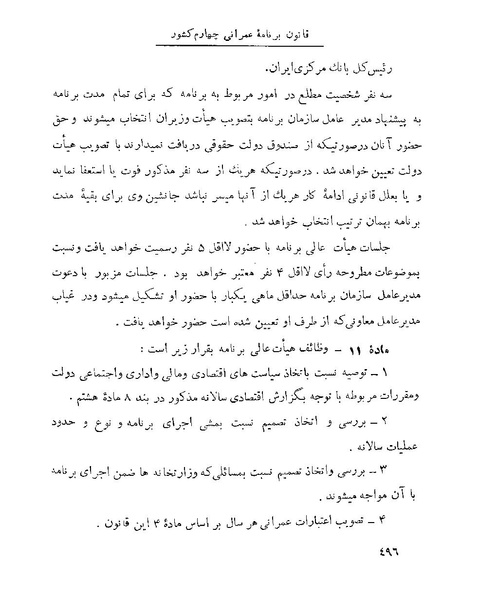 قانون برنامهٔ عمرانی چهارم کشور
رئیس کل بانک مرکزی ایران.
سه نفر شخصیت مطلع در امور مربوط به برنامه که برای تمام مدت برنامه
به پیشنهاد مدیر عامل سازمان برنامه بتصویب هیأت وزیران انتخاب میشوند و حق
حضور آنان درصورتیکه از صندوق دولت حقوقی دریافت نمیدارند با تصویب هیأت
دولت تعیین خواهد شد. درصورتیکه هریک از سه نفر مذکور فوت یا استعفا نماید
و یا بعلل قانونی ادامهٔ کار هریک از آنها میسر نباشد جانشین وی برای بقیهٔ مدت
برنامه بهمان ترتیب انتخاب خواهد شد.
جلسات هیأت عالی برنامه با حضور لااقل ۵ نفر رسمیت خواهد یافت و نسبت
بموضوعات مطروحه رأی لااقل ۴ نفر معتبر خواهد بود. جلسات مزبور با دعوت
مدیرعامل سازمان برنامه حداقل ماهی یکبار با حضور او تشکیل میشود و در غیاب
مدیرعامل معاونی که از طرف او تعیین شده است حضور خواهد یافت.
مادهٔ ۱۱ - وظائف هیأت عالی برنامه بقرار زیر است:
۱ - توصیه نسبت باتخاذ سیاست های اقتصادی و مالی و اداری و اجتماعی دولت
و مقررات مربوطه با توجه بگزارش اقتصادی سالانه مذکور در بند ۸ مادهٔ هشتم.
۲ - بررسی و اتخاذ تصمیم نسبت بمشی اجرای برنامه و نوع و حدود
عملیات سالانه.
۳ - بررسی و اتخاذ تصمیم نسبت بمسائلی که وزارتخانه ها ضمن اجرای برنامه
با آن مواجه میشوند.
۴ - تصویب اعتبارات عمرانی هر سال بر اساس مادهٔ ۴ این قانون.
۴۹۶